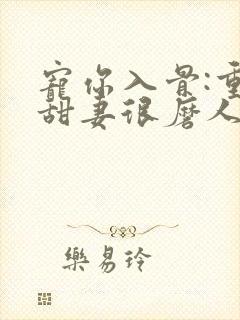 寵你入骨:重
甜妻很磨人
樂易玲